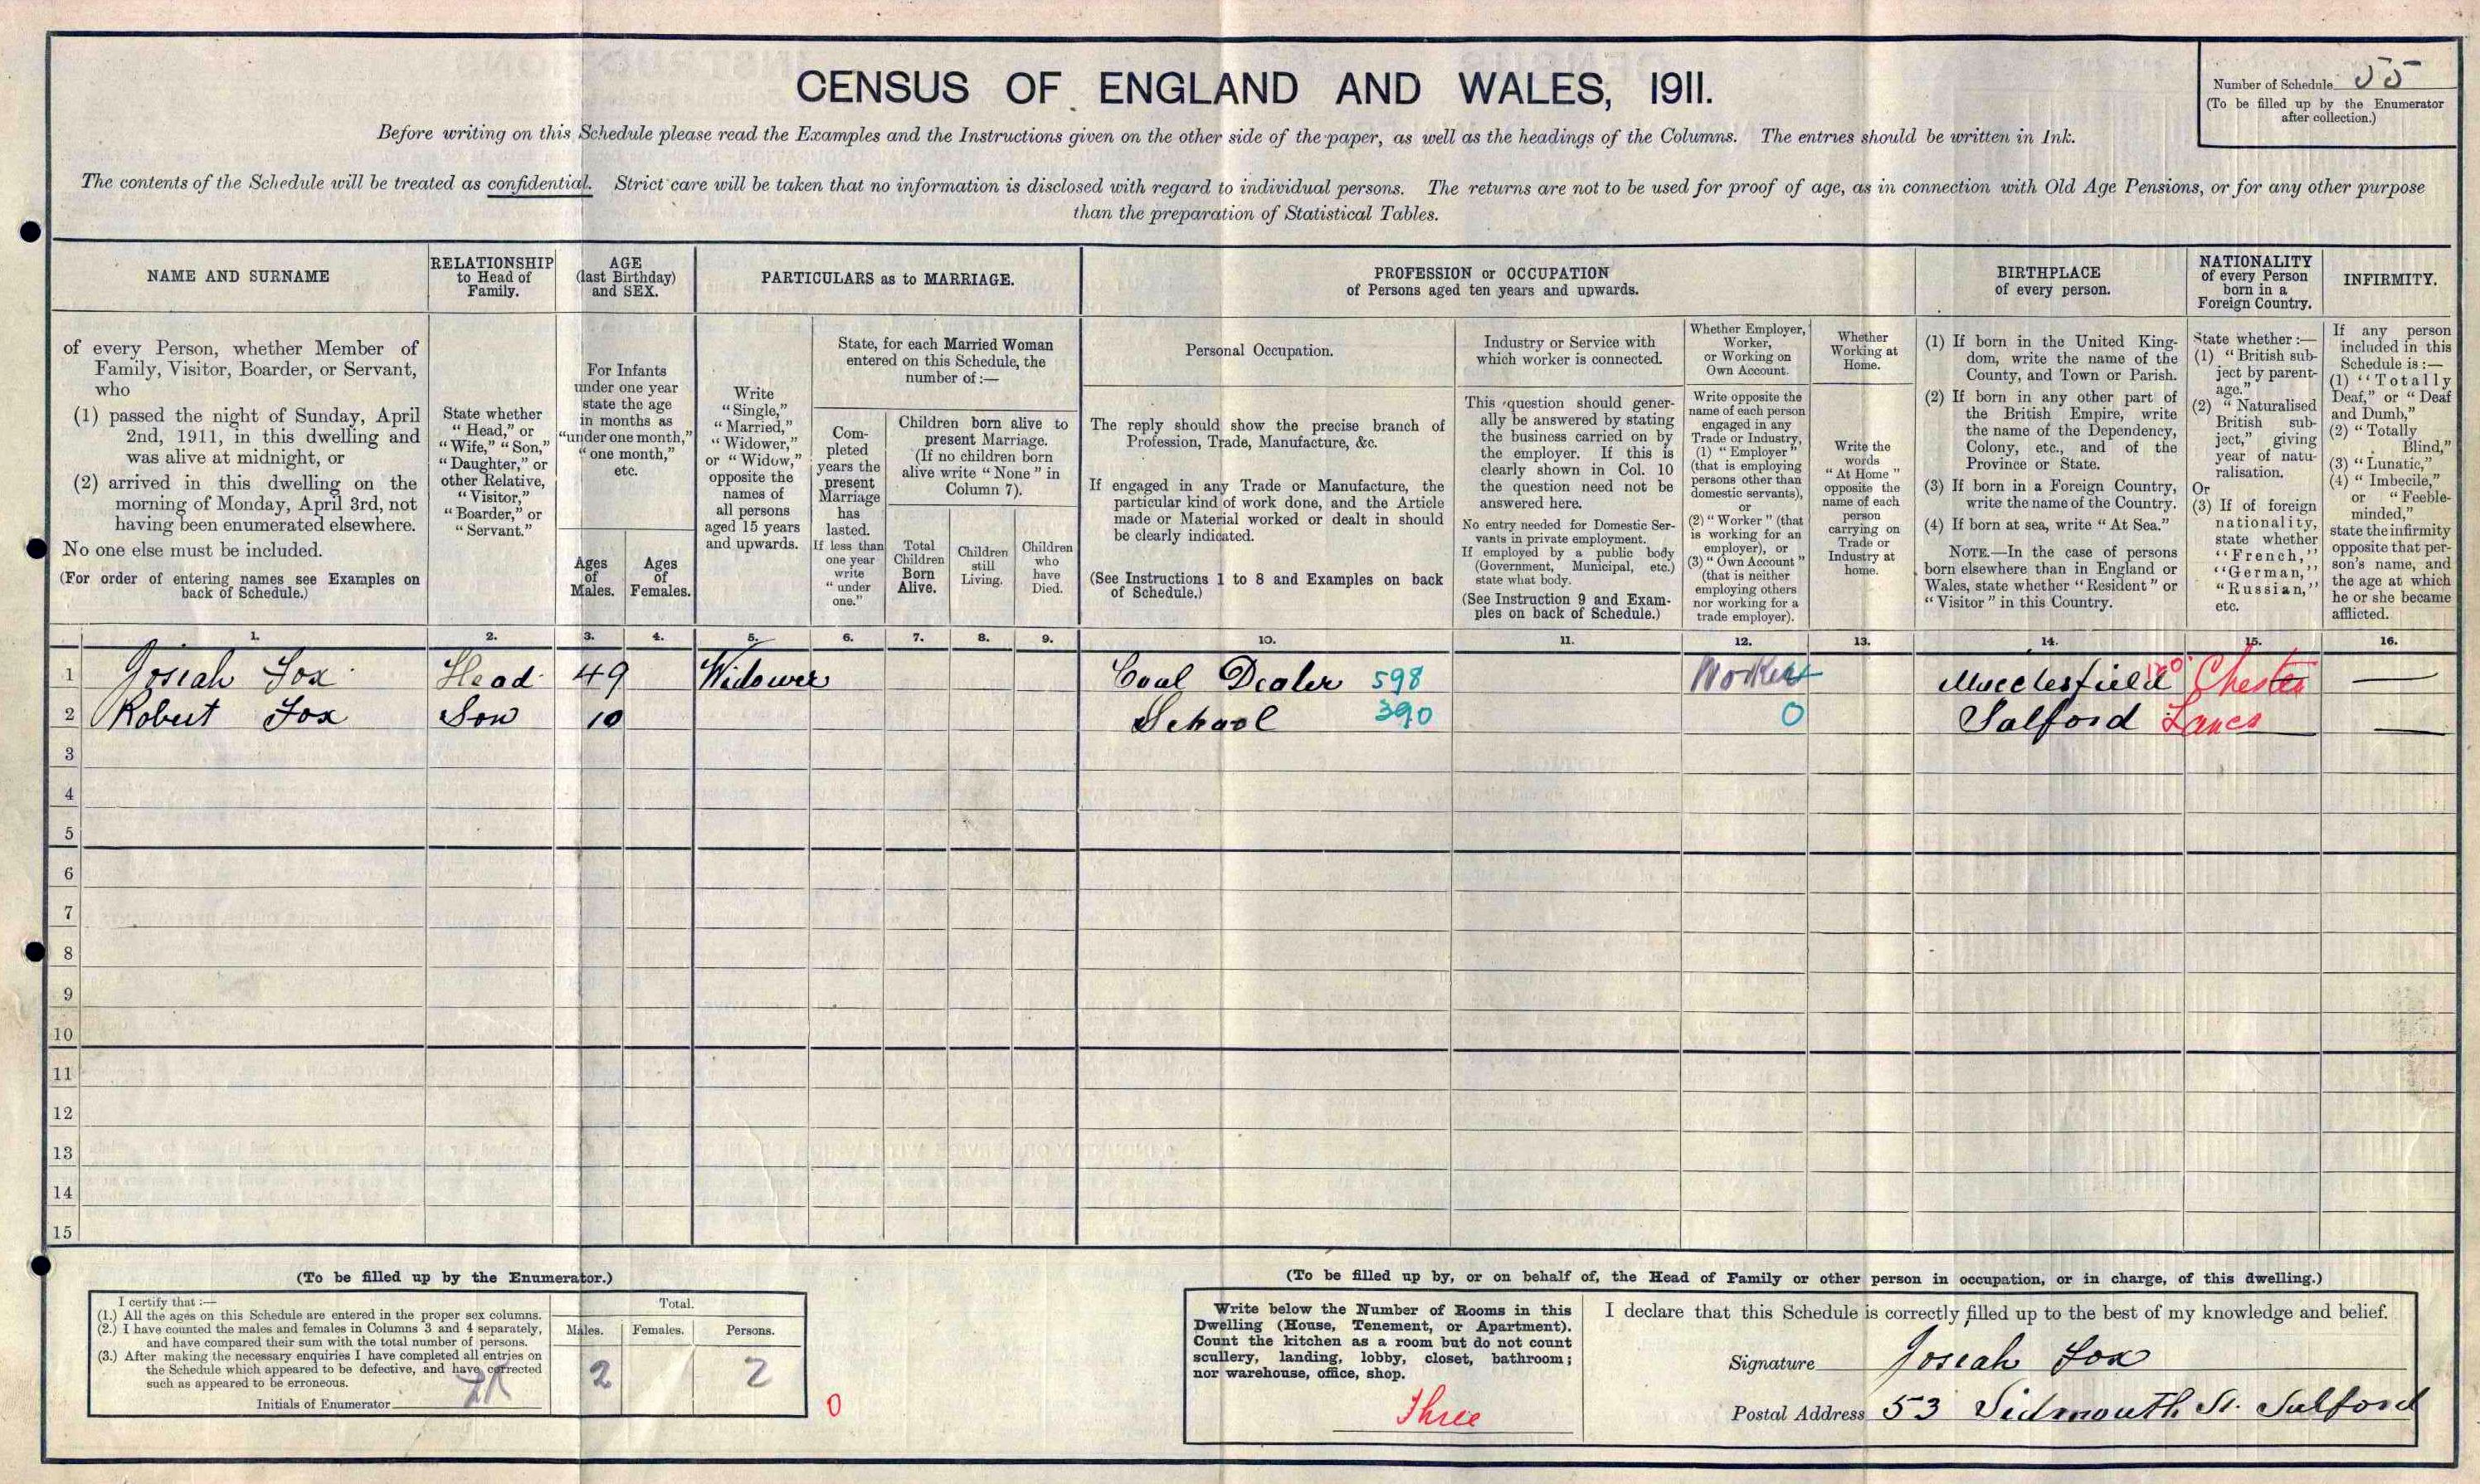 CENSUS OF ENGLAND AND WALES, 1911.
Number of Schedule 55
(To be filled up by the Enumerator
after collection.)
Before writing on this Schedule please read the Examples and the Instructions given on the other side of the paper, as well as the headings of the Columns. The entries should be written in Ink.
The contents of the Schedule will be treated as confidential. Strict care will be taken that no information is disclosed with regard to individual persons. The returns are not to be used for proof of age, as in connection with Old Age Pensions, or for any other purpose
than the preparation of Statistical Tables.
NAME AND SURNAME
of every Person, whether Member of
Family, Visitor, Boarder, or Servant,
who
(1) passed the night of Sunday, April
2nd, 1911, in this dwelling and
was alive at midnight, or
(2) arrived in this dwelling on the
morning of Monday, April 3rd, not
having been enumerated elsewhere.
No one else must be included.
(For order of entering names see Examples on
back of Schedule.)
RELATIONSHIP
to Head of
Family.
State whether
"Head," or
"Wife," "Son,"
"Daughter," or
other Relative,
"Visitor,"
"Boarder," or
"Servant."
AGE
(last Birthday)
and SEX.
For Infants
under one year
state the age
in months as
"under one month,"
"one month,"
etc.
Ages
of
Males.
Ages
of
Females.
PARTICULARS as to MARRIAGE.
Write
"Single,"
"Married,"
"Widower,"
or "Widow,"
opposite the
names of
all persons
aged 15 years
and upwards.
State, for each Married Woman
entered on this Schedule, the
number of :—
Com-
pleted
years the
present
Marriage
has
lasted.
If less than
one year
write
"under
one."
Children born alive to
present Marriage.
(If no children born
alive write "None" in
Column 7).
Total
Children
Born
Alive.
Children
still
Living.
Children
who
have
Died.
PROFESSION or OCCUPATION
of Persons aged ten years and upwards.
Personal Occupation.
The reply should show the precise branch of
Profession, Trade, Manufacture, &c.
If engaged in any Trade or Manufacture, the
particular kind of work done, and the Article
made or Material worked or dealt in should
be clearly indicated.
(See Instructions 1 to 8 and Examples on back
of Schedule.)
Industry or Service with
which worker is connected.
This question should gener-
ally be answered by stating
the business carried on by
the employer. If this is
clearly shown in Col. 10
the question need not be
answered here.
No entry needed for Domestic Ser-
vants in private employment.
If employed by a public body
(Government, Municipal, etc.)
state what body.
(See Instruction 9 and Exam-
ples on back of Schedule.)
Whether Employer,
Worker,
or Working on
Own Account.
Write opposite the
name of each person
engaged in any
Trade or Industry,
(1) "Employer"
(that is employing
persons other than
domestic servants),
or
(2) "Worker" (that
is working for an
employer), or
(3) "Own Account"
(that is neither
employing others
nor working for a
trade employer).
Whether
Working at
Home.
Write the
words
"At Home"
opposite the
name of each
person
carrying on
Trade or
Industry at
home.
BIRTHPLACE
of every person.
(1) If born in the United King-
dom, write the name of the
County, and Town or Parish.
(2) If born in any other part of
the British Empire, write
the name of the Dependency,
Colony, etc., and of the
Province or State.
(3) If born in a Foreign Country,
write the name of the Country.
(4) If born at sea, write "At Sea."
NOTE.—In the case of persons
born elsewhere than in England or
Wales, state whether "Resident" or
"Visitor" in this Country.
NATIONALITY
of every Person
born in a
Foreign Country.
State whether :—
(1) "British sub-
ject by parent-
age."
(2) "Naturalised
British sub-
ject," giving
year of natu-
ralisation.
Or
(3) If of foreign
nationality,
state whether
"French,"
"German,"
"Russian,"
etc.
INFIRMITY.
If any person
included in this
Schedule is :—
(1) "Totally
Deaf," or "Deaf
and Dumb,"
(2) "Totally
Blind,"
(3) "Lunatic,"
(4) "Imbecile,"
or "Feeble-
minded,"
state the infirmity
opposite that per-
son's name, and
the age at which
he or she became
afflicted.
1. 2. 3. 4. 5. 6. 7. 8. 9. 10. 11. 12. 13. 14. 15. 16.
1 Josiah Fox Head 49 Widower Coal Dealer 598 Worker Macclesfield 120 Chester —
2 Robert Fox Son 10 School 390 0 Salford Lancs —
3
4
5
6
7
8
9
10
11
12
13
14
15
(To be filled up by the Enumerator.)
I certify that :—
(1.) All the ages on this Schedule are entered in the proper sex columns.
(2.) I have counted the males and females in Columns 3 and 4 separately,
and have compared their sum with the total number of persons.
(3.) After making the necessary enquiries I have completed all entries on
the Schedule which appeared to be defective, and have corrected
such as appeared to be erroneous.
Initials of Enumerator
Total.
Males. Females. Persons.
2 2
0
(To be filled up by, or on behalf of, the Head of Family or other person in occupation, or in charge, of this dwelling.)
Write below the Number of Rooms in this
Dwelling (House, Tenement, or Apartment).
Count the kitchen as a room but do not count
scullery, landing, lobby, closet, bathroom;
nor warehouse, office, shop.
Three
I declare that this Schedule is correctly filled up to the best of my knowledge and belief.
Signature Josiah Fox
Postal Address 53 Sidmouth St. Salford